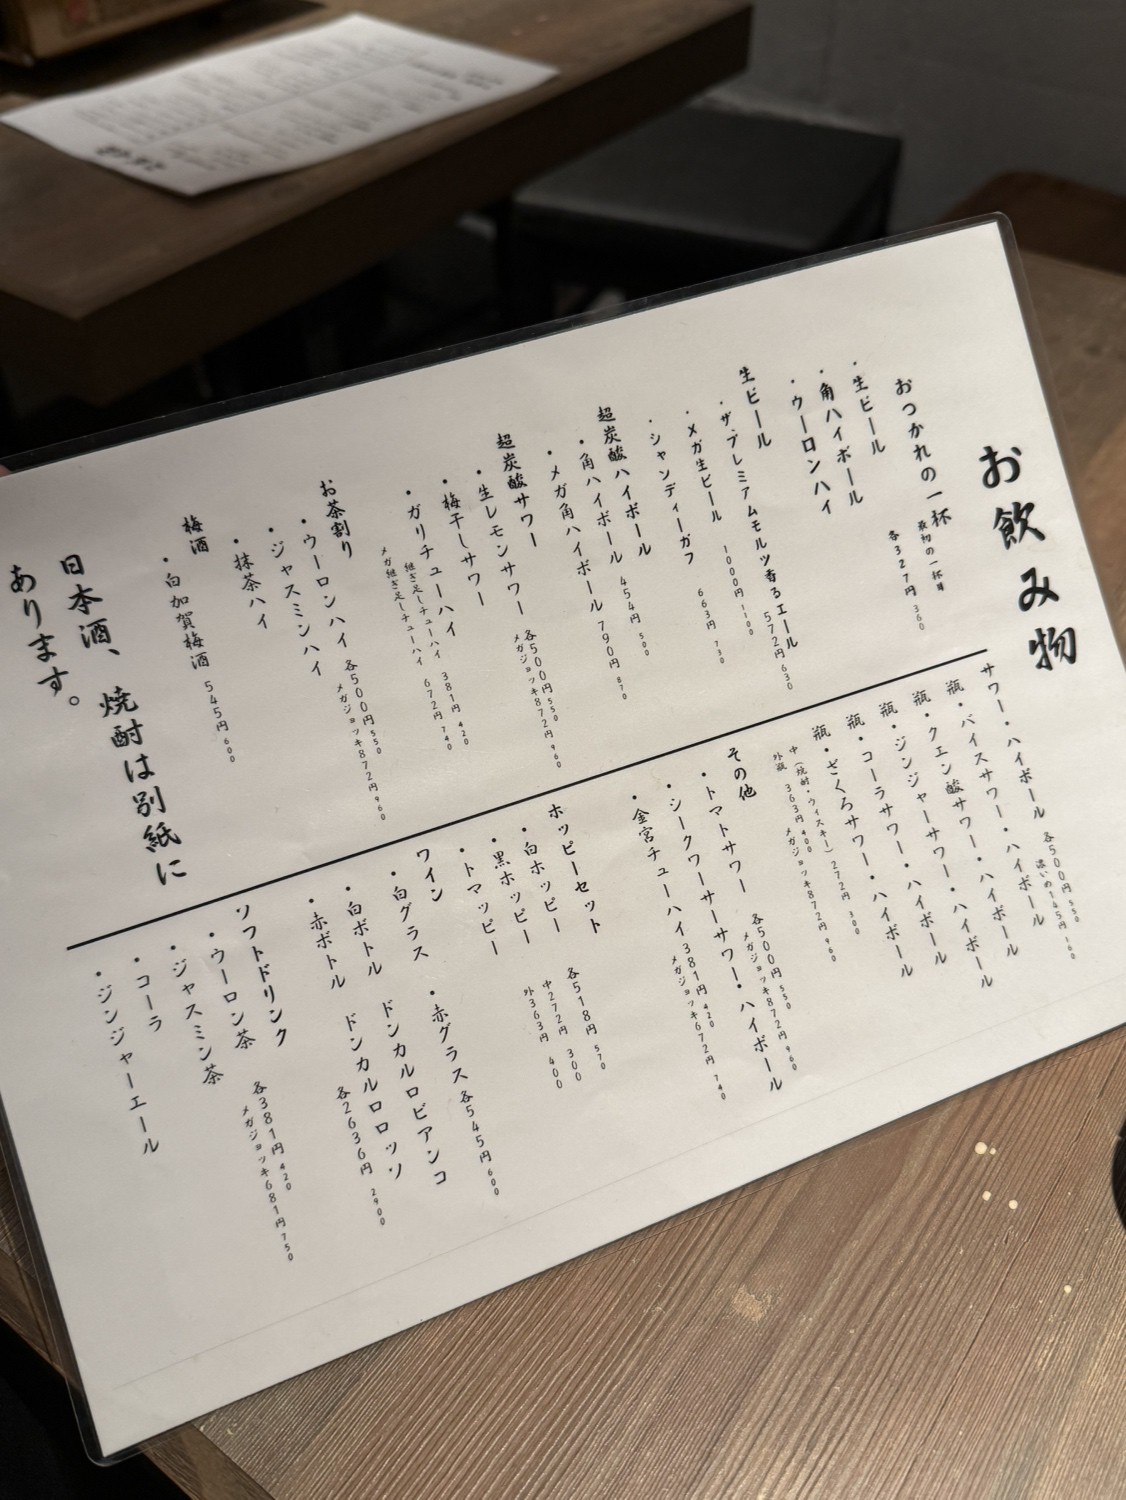 お飲み物
おつかれの一杯 最初の一杯目
各327円 360
・生ビール
・角ハイボール
・ウーロンハイ
生ビール
・ザ・プレミアムモルツ香るエール
572円 630
・メガ生ビール 1000円 1100
・シャンディーガフ 663円 730
超炭酸ハイボール
・角ハイボール 454円 500
・メガ角ハイボール 790円 870
超炭酸サワー
・生レモンサワー 各500円 550
メガジョッキ872円 960
・梅干しサワー
・ガリチューハイ 381円 420
継ぎ足しチューハイ
メガ継ぎ足しチューハイ 672円 740
お茶割り
・ウーロンハイ 各500円 550
メガジョッキ872円 960
・ジャスミンハイ
・抹茶ハイ
梅酒
・白加賀梅酒 545円 600
日本酒、焼酎は別紙に
あります。
サワー・ハイボール 各500円 550
濃いめ145円 160
瓶・バイスサワー・ハイボール
瓶・クエン酸サワー・ハイボール
瓶・ジンジャーサワー・ハイボール
瓶・コーラサワー・ハイボール
瓶・ざくろサワー・ハイボール
中(焼酎・ウィスキー) 272円 300
外瓶 363円 400 メガジョッキ872円 960
その他
・トマトサワー 各500円 550
メガジョッキ872円 960
・シークワーサーサワー・ハイボール
・金宮チューハイ 381円 420
メガジョッキ672円 740
ホッピーセット 各518円 570
・白ホッピー 中272円 300
・黒ホッピー 外363円 400
・トマッピー
ワイン
・白グラス ・赤グラス 各545円 600
・白ボトル ドンカルロビアンコ
・赤ボトル ドンカルロロッソ
各2636円 2900
ソフトドリンク
・ウーロン茶 各381円 420
メガジョッキ681円 750
・ジャスミン茶
・コーラ
・ジンジャーエール